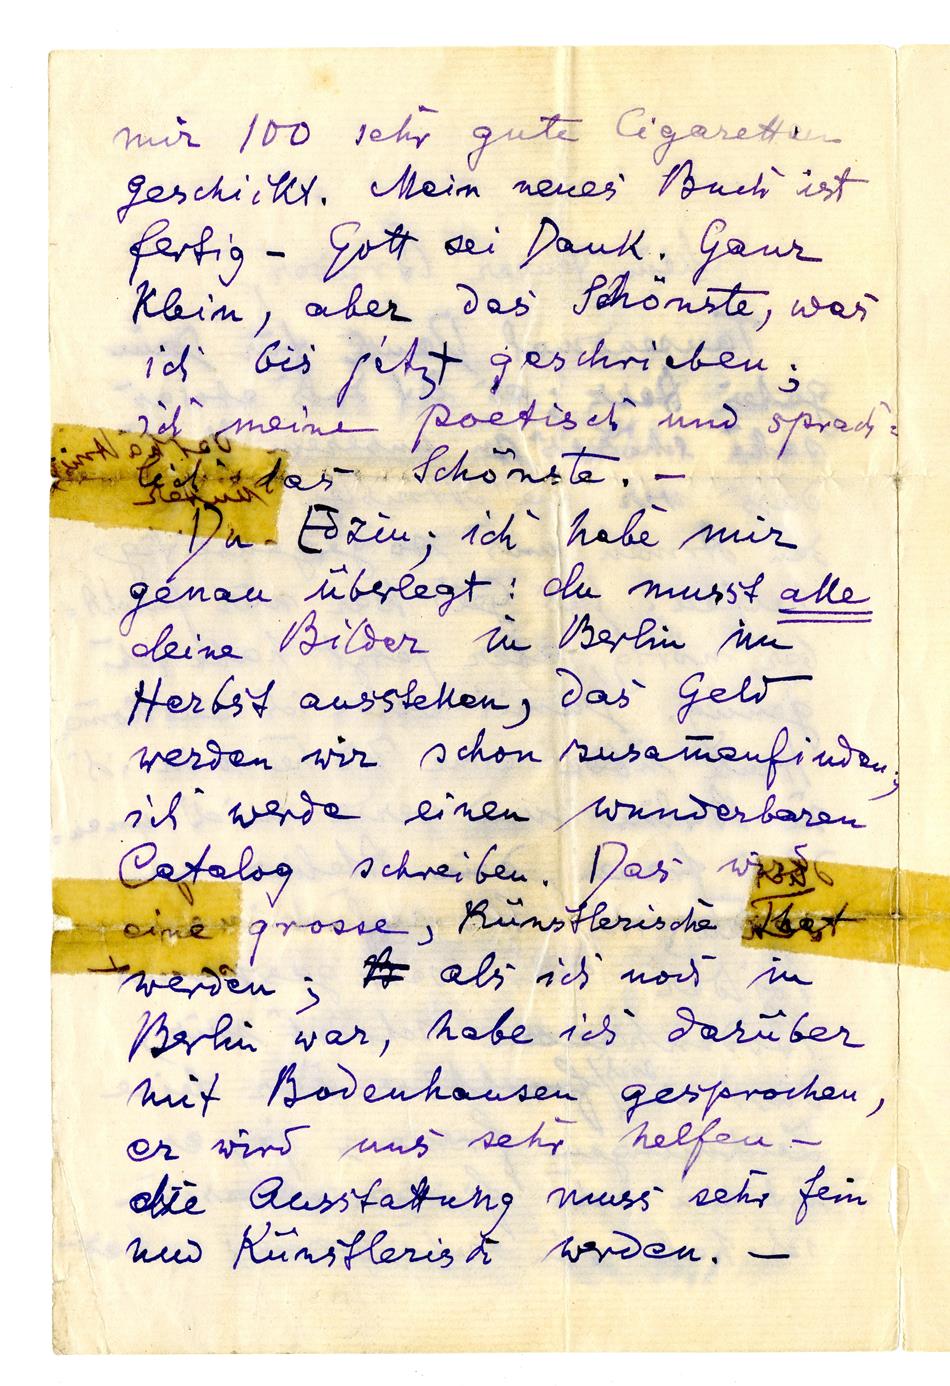 mir 100 sehr gute Cigaretten
geschickt. Mein neues Buch ist
fertig – Gott sei Dank. Ganz
Klein, aber das Schönste, was
ich bis jetzt geschrieben;
ich meine poetisch und sprach=
lich das Schönste. –
Du Edziu; ich habe mir
genau überlegt: du musst alle
deine Bilder in Berlin im
Herbst ausstellen, das Geld
werden wir schon zusam̄enfinden;
ich werde einen wunderbaren
Catalog schreiben. Das wird
eine grosse, Künstlerische That
werden; als ich noch in
Berlin war, habe ich darüber
mit Bodenhausen gesprochen,
er wird uns sehr helfen –
die Ausstattung muss sehr fein
und Künstlerisch werden. –